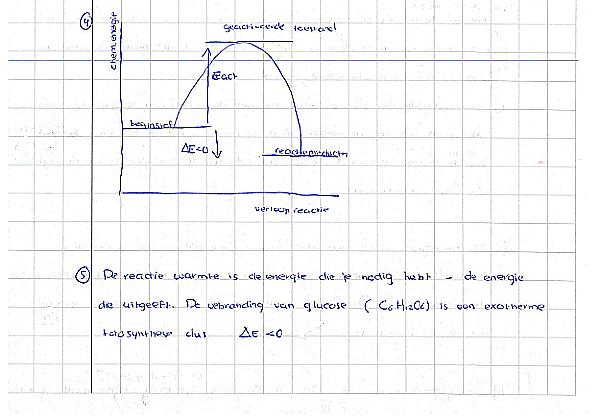 ④
geactiveerde toestand
chem energie
Eact
beginstof
ΔE<0
reactieproducten
verloop reactie
⑤ De reactie warmte is de energie die je nodig hebt - de energie
die uitgeeft. De verbranding van glucose (C6H12O6) is een exotherme
fotosynthese dus ΔE <0